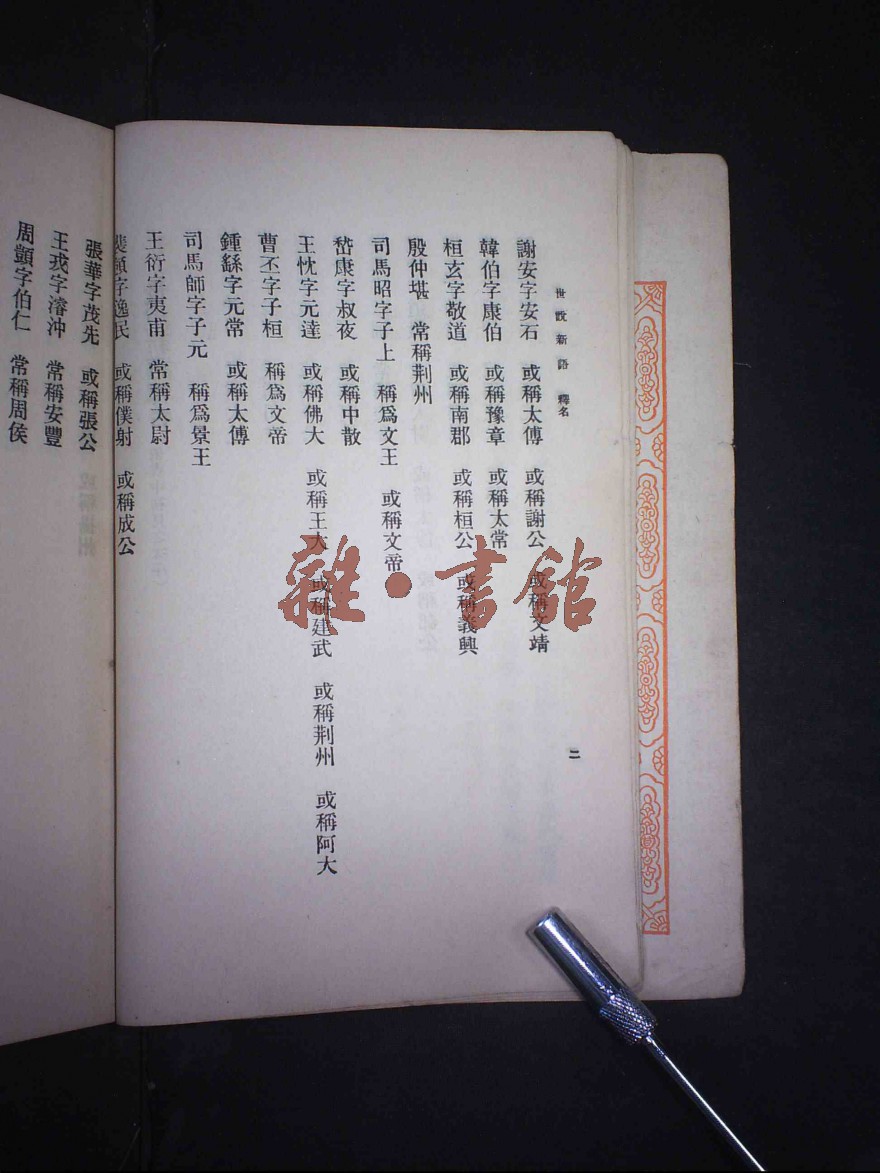 世說新語　釋名
二
謝安字安石　或稱太傅　或稱謝公　或稱文靖
韓伯字康伯　或稱豫章　或稱太常
桓玄字敬道　或稱南郡　或稱桓公　或稱義興
殷仲堪　常稱荆州
司馬昭字子上　稱爲文王　或稱文帝
嵇康字叔夜　或稱中散
王忱字元達　或稱佛大　或稱王大　或稱建武　或稱荆州　或稱阿大
曹丕字子桓　稱爲文帝
鍾繇字元常　或稱太傅
司馬師字子元　稱爲景王
王衍字夷甫　常稱太尉
裴頠字逸民　或稱僕射　或稱成公
張華字茂先　或稱張公
王戎字濬冲　常稱安豐
周顗字伯仁　常稱周侯
雜·書館